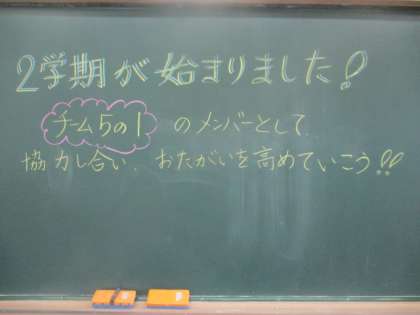 2学期が始まりました!
チーム5の1のメンバーとして
協力し合い、おたがいを高めていこう!!